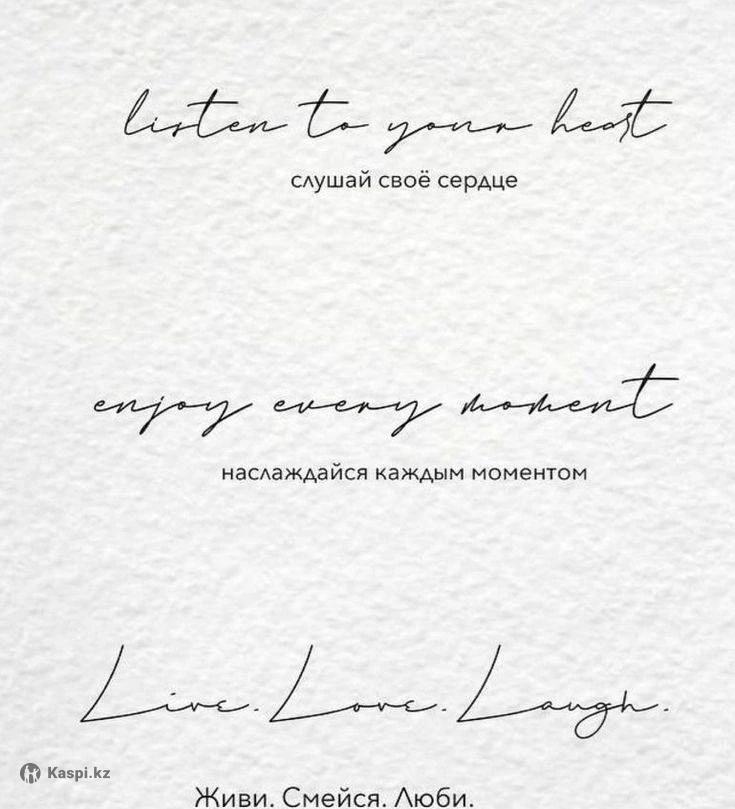 listen to your heart
слушай своё сердце
enjoy every moment
наслаждайся каждым моментом
Live. Love. Laugh.
Kaspi.kz
Живи. Смейся. Люби.